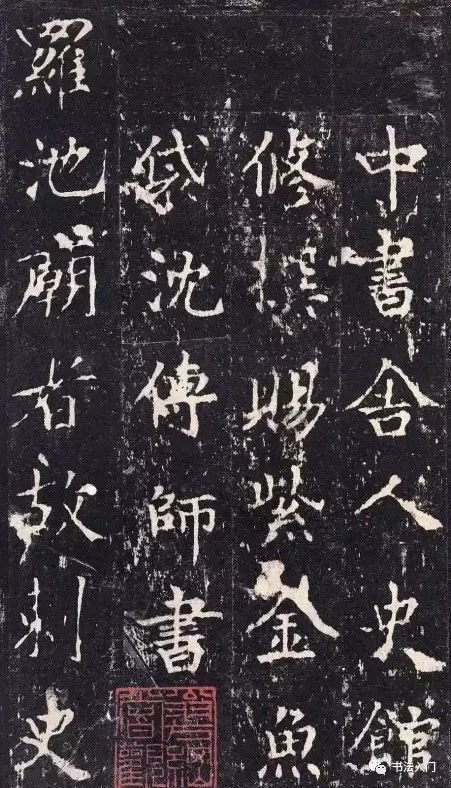 中書舍人史館
修撰賜紫金魚
袋沈傳師書
羅池廟者故刺史
书法入门